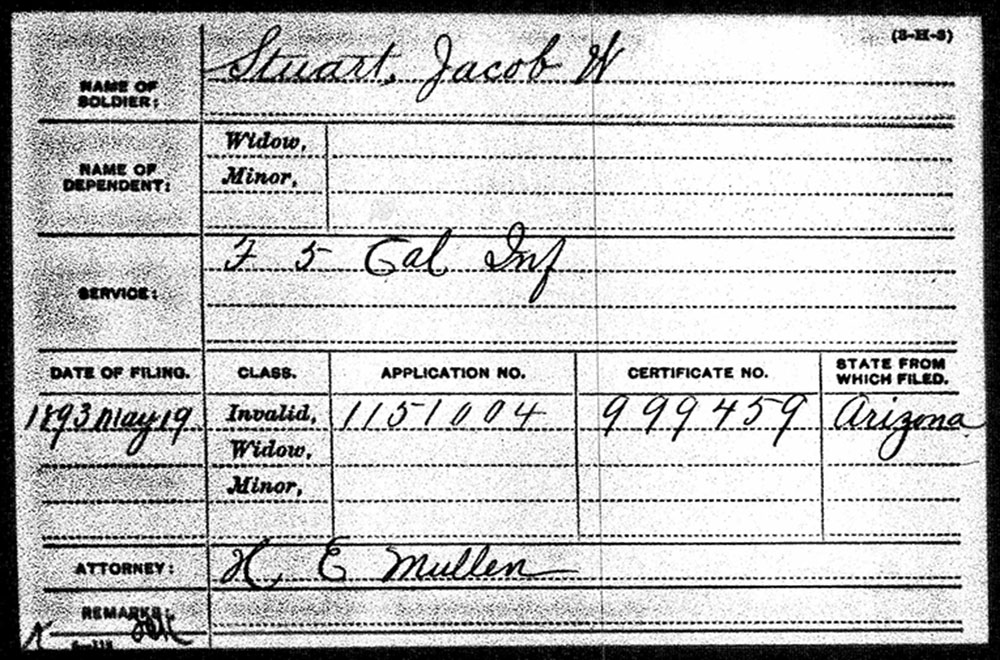 (3-H-3)
NAME OF SOLDIER: Stuart, Jacob W
NAME OF DEPENDENT: Widow,
Minor,
SERVICE: F 5 Cal Inf
DATE OF FILING. CLASS. APPLICATION NO. CERTIFICATE NO. STATE FROM WHICH FILED.
1893 May 19 Invalid, 1151004 999459 Arizona
Widow,
Minor,
ATTORNEY: H E Mullen
REMARKS: